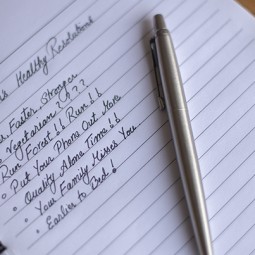 Healthy Resolutions
Faster, Stronger
Vegetarian ???
Run Forest!! Run!!
Put Your Phone Out More
Quality Alone Time!!
Your Family Misses You
Earlier to Bed!